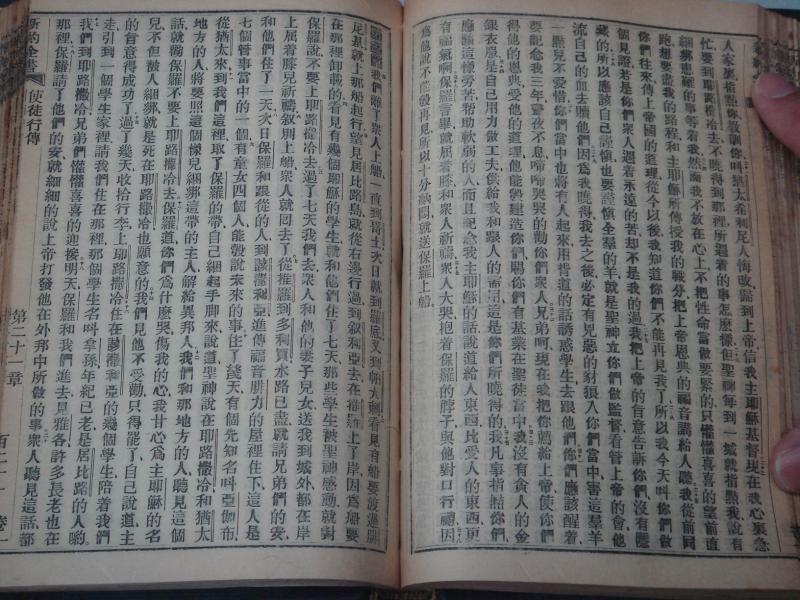 人家要指點你教訓你叫猶太希利尼人悔改歸到上帝信我主耶穌基督現在我心裏急
忙要到耶路撒冷去不曉得到那裡所遇着的事怎麼樣但聖神每到一城就指點我說有
綑綁患難的事等着我然而我不放在心上不把性命當做要緊的只懽懽喜喜的望前直
跑想要盡我的路程和主耶穌所傳授我的職分把上帝恩典的福音講給人聽我從前同
你們往來傳上帝國的道理從今以後我知道你們不能再見我了所以我今天叫你們做
個見證若是你們衆人遇着永遠的苦却不是我的過我把上帝的旨意告訴你們沒有隱
藏的所以應該自己謹愼也要謹愼全羣的羊就是聖神立你們做監督看管上帝的會他
流自己的血去贖他們因爲我曉得我去之後必定有兇惡的豺狼入你們當中害這羣羊
一點兒不愛惜你們當中也將有人起來用悖道的話誘惑學生去跟他們你們應該醒着
要記念我三年晝夜不息啼啼哭哭的勸你們衆人兄弟呵現在我把你們薦給上帝使你們
得他的恩典受他的道理他能彀建造你們賜你們有基業在聖徒當中我沒有貪人的金
銀衣服是自己用力做工夫供給我和跟人的需用這是你們所曉得的我凡事指點你們
應該這樣勞苦帮助輭弱的人而且記念我主耶穌的話說道給人東西比愛人的東西更
有福氣啊保羅言畢就屈着膝和衆人祈禱衆人大哭抱着保羅的脖子與他對口行禮因
爲他說不能彀再見所以十分納悶就送保羅上船
我們離了衆人上船一直到哥士次日就到羅底又到帕大喇看見有船要渡過腓
尼基就上那船起行望見居比路島就從右邊行過到叙利亞去在推羅上了岸因爲船要
在那裡卸載的看見有幾個耶穌的學生就和他們住了七天那些學生被聖神感動就對
保羅說不要上耶路撒冷去過了七天我們去衆人和他的妻子兒女送我到城外都在岸
上屈着膝兒祈禱叙別上船衆人就回去了從推羅到多利買水路已盡就請兄弟們的安
和他們住了一天次日保羅和跟從的人到該撒利亞進傳福音腓力的屋裡住下這人是
七個管事當中的一個有童女四個人能彀說未來的事住了幾天有個先知名叫亞伽布
從猶太來到我們這裡取了保羅的帶自己綑起手脚來說道聖神說在耶路撒冷和猶太
地方的人將要照這個樣兒綑綁這帶的主人解給異邦人我們和那地方的人聽見這個
話就勸保羅不要上耶路撒冷去保羅道你們爲什麽哭傷我的心我甘心爲主耶穌的名
兒不但被人綑綁就是死在耶路撒冷也願意的我們見他不受勸只得罷了自己說道主
的旨意得成功了過了幾天收恰行李上耶路撒冷住在該撒利亞的幾個學生陪着我們
走引到一個學生家裡請我們住在那裡那個學生名叫拿孫年紀已老是居比路的人喲
我們到耶路撒冷兄弟們懽懽喜喜的迎接明天保羅和我們進去見雅各許多長老也在
那裡保羅請了他們的安就細細的說上帝打發他在外邦中所做的事衆人聽見這話都
新約全書
使徒行傳
第二十一章